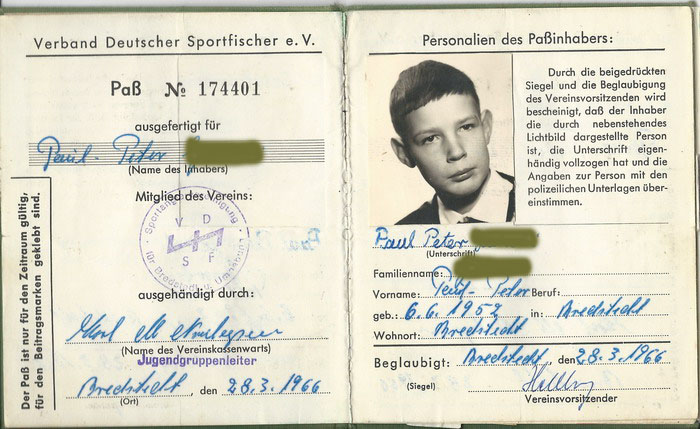 Verband Deutscher Sportfischer e. V.
Paß № 174401
ausgefertigt für
Paul-Peter
(Name des Inhabers)
Mitglied des Vereins:
Sportangler
für Bredstedt u. Umgebung
V D
S F
ausgehändigt durch:
Karl
(Name des Vereinskassenwarts)
Jugendgruppenleiter
Bredstedt, den 28.3.1966
(Ort)
Der Paß ist nur für den Zeitraum gültig,
für den Beitragsmarken geklebt sind.
Personalien des Paßinhabers:
Durch die beigedrückten
Siegel und die Beglaubigung
des Vereinsvorsitzenden wird
bescheinigt, daß der Inhaber
die durch nebenstehendes
Lichtbild dargestellte Person
ist, die Unterschrift eigen-
händig vollzogen hat und die
Angaben zur Person mit den
polizeilichen Unterlagen über-
einstimmen.
Paul Peter
(Unterschrift)
Familienname:
Vorname: Paul-Peter Beruf:
geb.: 6.6.1952 in: Bredstedt
Wohnort: Bredstedt
Beglaubigt: Bredstedt, den 28.3.1966
(Siegel)
Vereinsvorsitzender